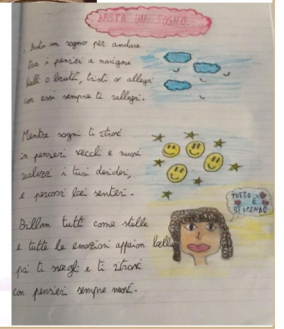 BASTA UN SOGNO
Basta un sogno per andare
tra i pensieri a navigare
belli o brutti, tristi o allegri
con essi sempre ti rallegri.
Mentre sogni ti trovi
in pensieri vecchi e nuovi
realizzi i tuoi desideri,
e percorri bei sentieri.
Brillan tutti come stelle
e tutte le emozioni appaion belle
poi ti svegli e ti trovi
con pensieri sempre nuovi.
TUTTO
È